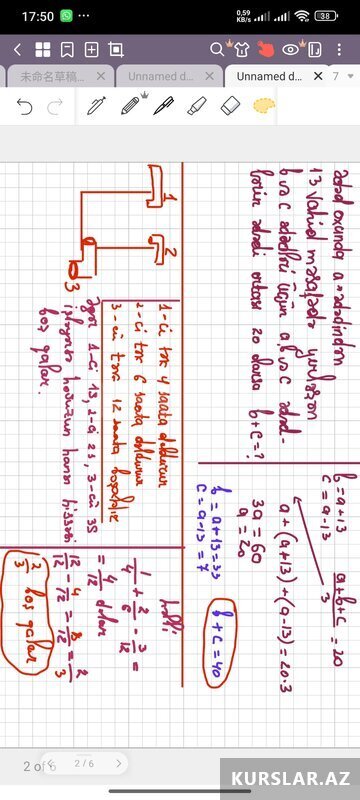 17:50
0,59
KB/s
38
未命名草稿...
Unnamed d...
Unnamed d...
7
ədəd oxunda a ədədindən
13 vahid məsafədə yerləşən
b və c ədədləri üçün a, b və c ədəd-
lərinin ədədi ortası 20 olarsa b+c=?
b = a+13
c = a-13
a+b+c
3
= 20
a + (a+13) + (a-13) = 20·3
3a = 60
a = 20
b = a+13 = 33
c = a-13 = 7
b + c = 40
1
2
3
1-ci tor 4 saata doldurur
2-ci tor 6 saata doldurur
3-cü tor 12 saata boşaldır
əgər 1-ci 1s, 2-ci 2s, 3-cü 3s
işləyərsə hovuzun hansı hissəsi
boş qalar.
həlli
1/4 + 2/6 - 3/12 =
= 4/12 dolar
12/12 - 4/12 = 8/12 = 2/3
2/3 boş qalar
2 of 6
2/6
KURSLAR.AZ